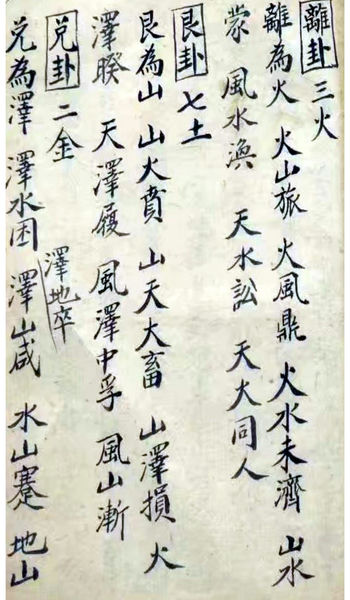 離卦 三火
離為火 火山旅 火風鼎 火水未濟 山水
蒙 風水渙 天水訟 天火同人
艮卦 七土
艮為山 山火賁 山天大畜 山澤損 火
澤睽 天澤履 風澤中孚 風山漸
兌卦 二金
澤地卒
兌為澤 澤水困 澤山咸 水山蹇 地山